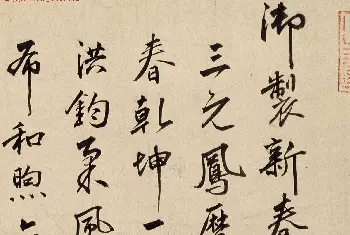 御製新春
三元鳳曆
春乾坤一
洪鈞柔風
布和煦